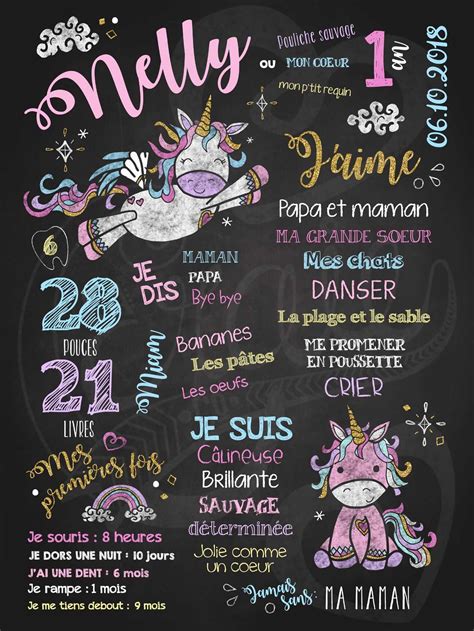 Nelly
ou
Pouliche sauvage
MON COEUR
mon p'tit requin
1 an
06.10.2018
J'aime
Papa et maman
MA GRANDE SOEUR
Mes chats
DANSER
La plage et le sable
ME PROMENER
EN POUSSETTE
CRIER
6
28
POUCES
21
LIVRES
JE
DIS
MAMAN
PAPA
Bye bye
Miam
Bananes
Les pâtes
Les oeufs
Mes
premières fois
Je souris : 8 heures
JE DORS UNE NUIT : 10 jours
J'AI UNE DENT : 6 mois
Je rampe : 1 mois
Je me tiens debout : 9 mois
JE SUIS
Câlineuse
Brillante
SAUVAGE
déterminée
Jolie comme
un coeur
Jamais
sans:
MA MAMAN